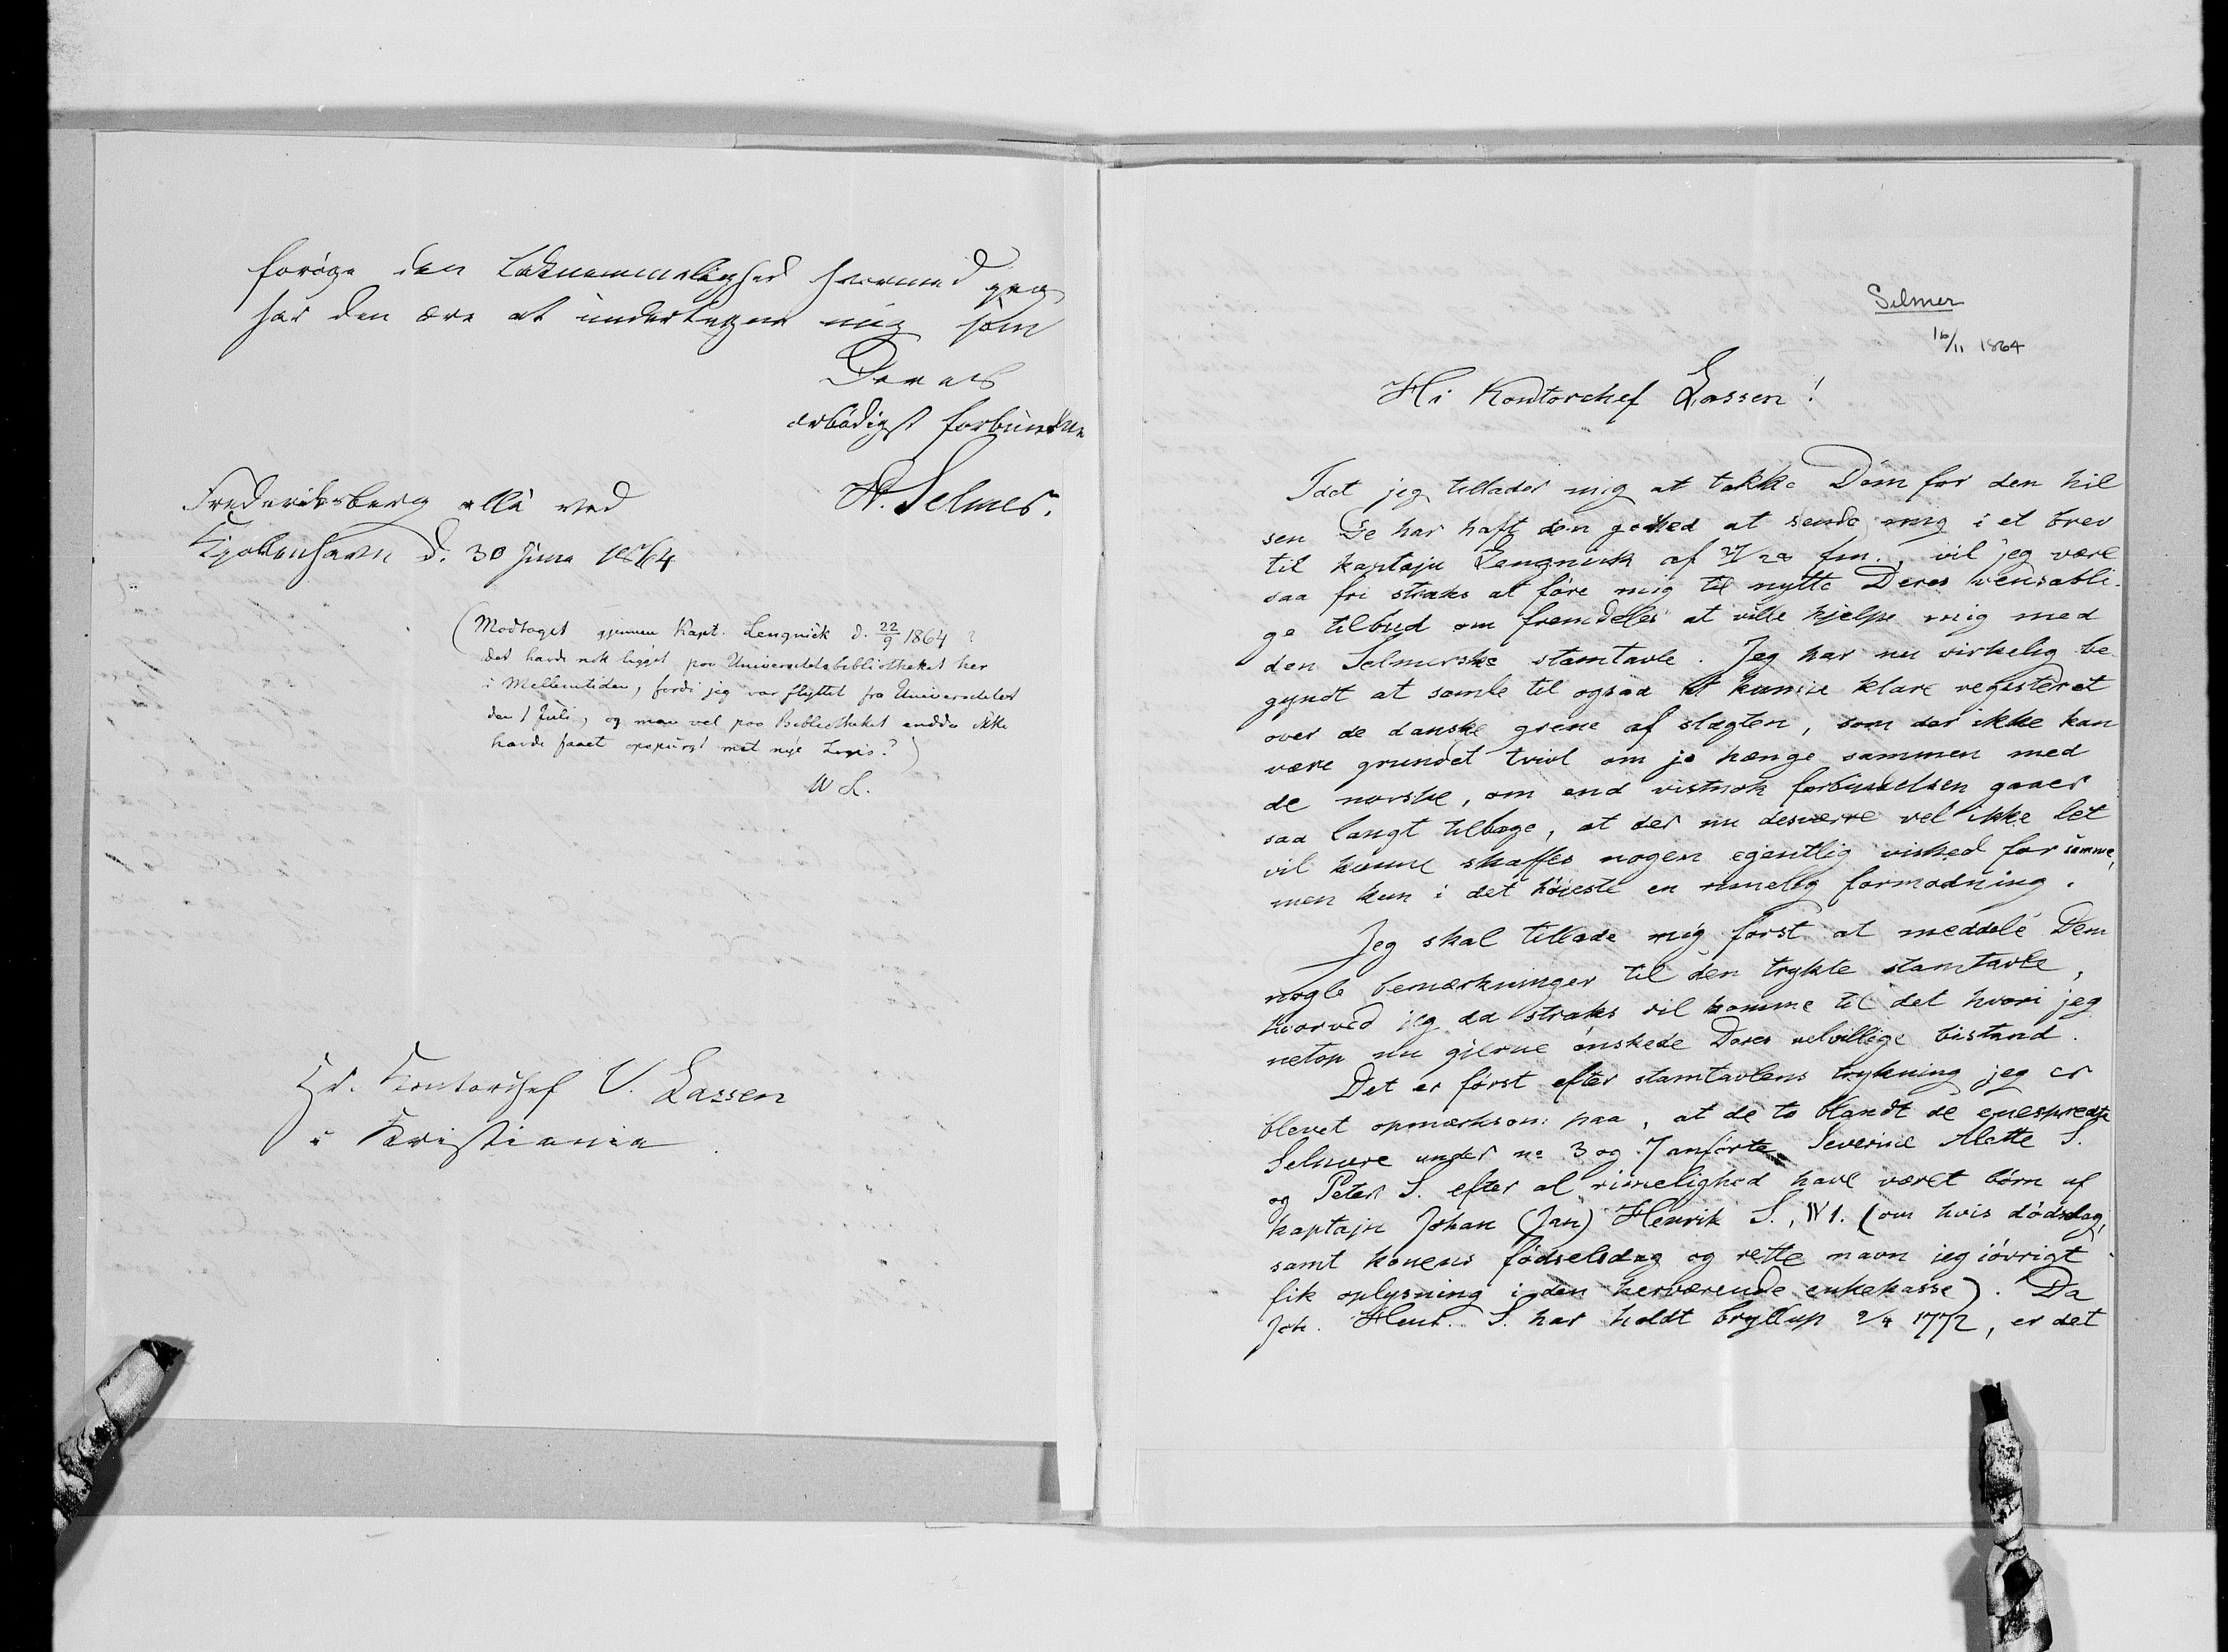 forøge den taknemmelighed hvormed jeg
har den ære at undertegne mig som
Deres
ærbødigst forbundne
H. Selmer.
Frederiksberg allé ved
Kjøbenhavn d. 30 Juni 1864
(Modtaget gjennem Kapt. Lengnick d. 22/9 1864
det havde nok ligget paa Universitetsbibliotheket her
i Mellemtiden, fordi jeg var flyttet fra Universitetet
den 1 Juli, og man vel paa Bibliotheket endda ikke
havde faaet opspurgt mit nye Logis?)
W L.
Hr. Kontorchef V. Lassen
i Kristiania.
Selmer
16/11 1864
Hr Kontorchef Lassen!
Idet jeg tillader mig at takke Dem for den hil
sen De har haft den godhed at sende mig i et brev
til kaptajn Lengnick af fm., vil jeg være
saa fri straks at føre mig til nytte Deres vensabli-
ge tilbud om fremdeles at ville hjelpe mig med
den Selmerske stamtavle. Jeg har nu virkelig be-
gyndt at samle til ogsaa at kunne klare registeret
over de danske grene af slægten, som der ikke kan
være grundet tvivl om jo hænge sammen med
de norske, om end vistnok forbindelsen gaaer
saa langt tilbage, at der nu desværre vel ikke let
vil kunne skaffes nogen egentlig vished for samme,
men kun i det høieste en rimelig formodning.
Jeg skal tillade mig først at meddele Dem
nogle bemærkninger til den trykte stamtavle,
hvorved jeg da straks vil komme til det hvori jeg
netop nu gjerne ønskede Deres velvillige bistand.
Det er først efter stamtavlens trykning jeg er
blevet opmærksom paa, at de to blandt de enespredte
Selmere under no 3 og 7 anførte Severine Alette S.
og Peter S. efter al rimelighed have været børn af
kaptajn Johan (Jan) Henrik S., IV 1. (om hvis dødsdag,
samt konens fødselsdag og rette navn jeg iøvrigt
fik oplysning i den herværende enkekasse). Da
Joh. Henr. S. har holdt bryllup 2/4 1772, er det